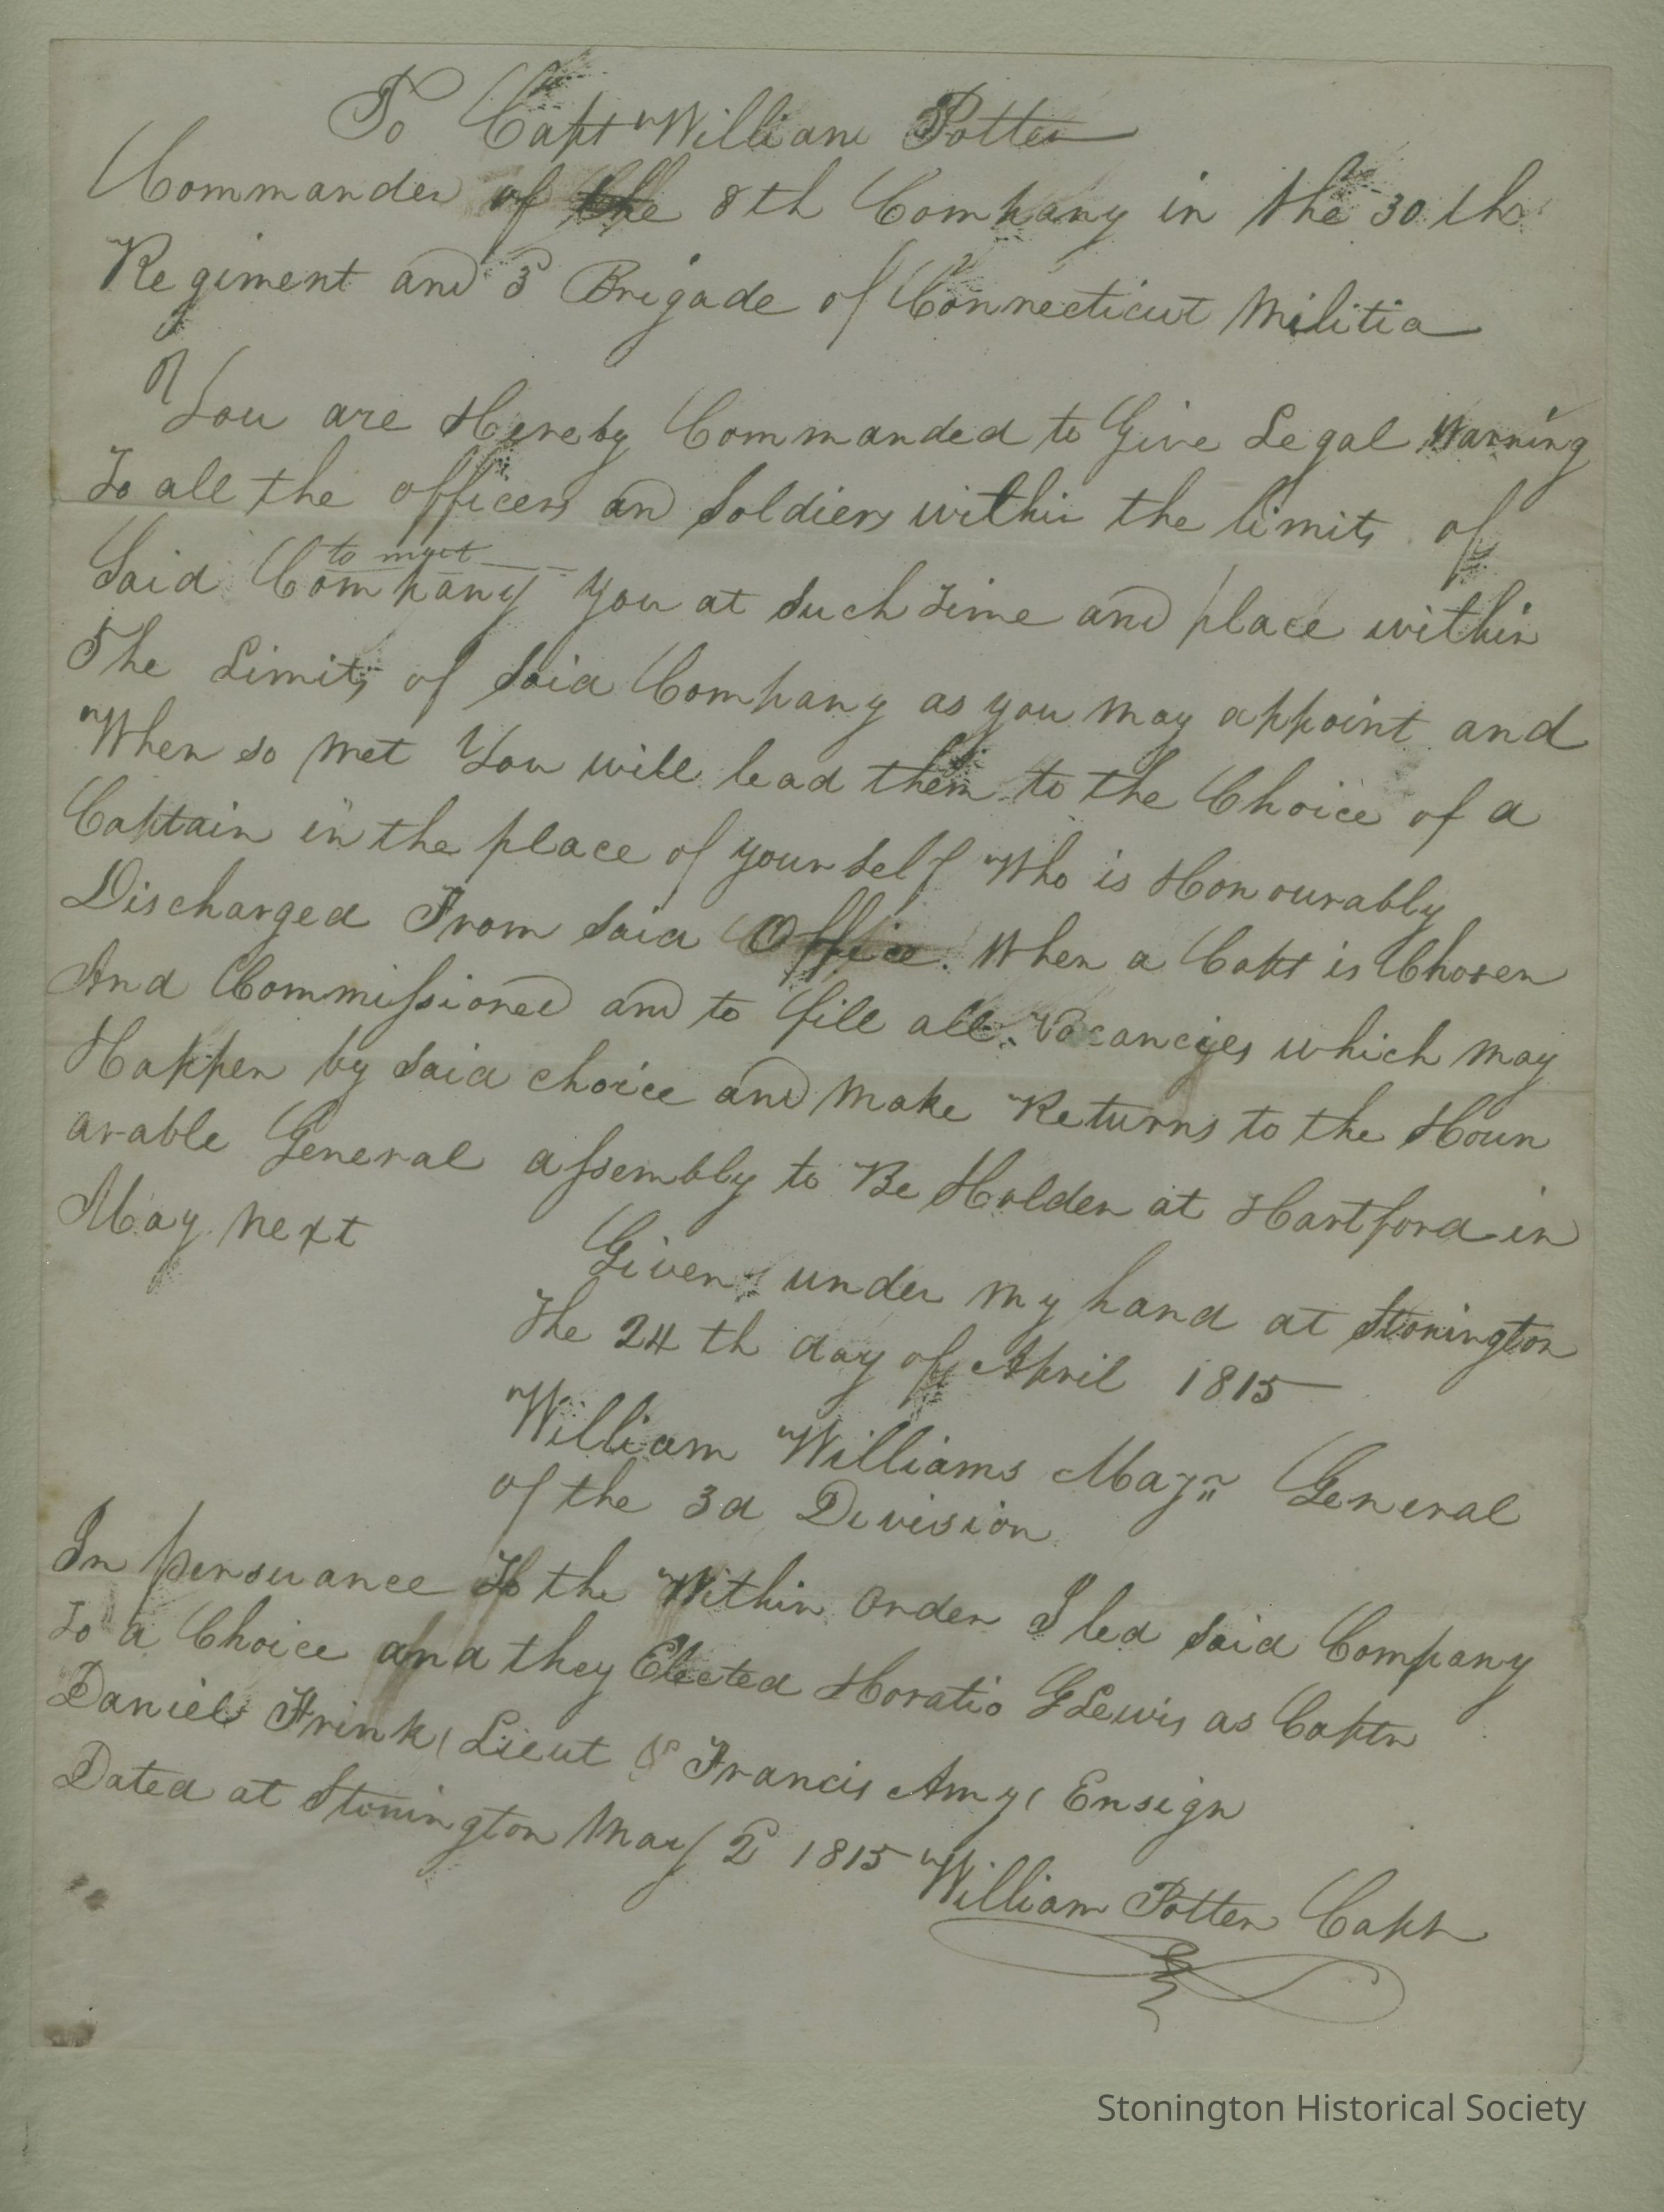 To Capt William Potter
Commander of the 8th Company in the 30th
Regiment and 3 Brigade of Connecticut Militia
You are Hereby Commanded to Give Legal Warning
To all the officers and Soldiers within the limits of
to meet
Said Company you at such Time and place within
The Limits of Said Company as you may appoint and
When so met You will lead them to the Choice of a
Captain in the place of your self Who is Honourably
Discharged From Said Office. When a Capt is Chosen
And Commissioned and to fill all Vacancyes which may
Happen by said choice and Make Returns to the Houn
arable General assembly to Be Holden at Hartford in
May next
Given under my hand at Stonington
The 24th day of April 1815
William Williams Majr General
of the 3d Division
In persuance To the Within order I led said Company
To a Choice and they Elected Horatio G Lewis as Captn
Daniel Frink Lieut & Francis Amy Ensign
Dated at Stonington May 2 1815 William Potter Captn
Stonington Historical Society